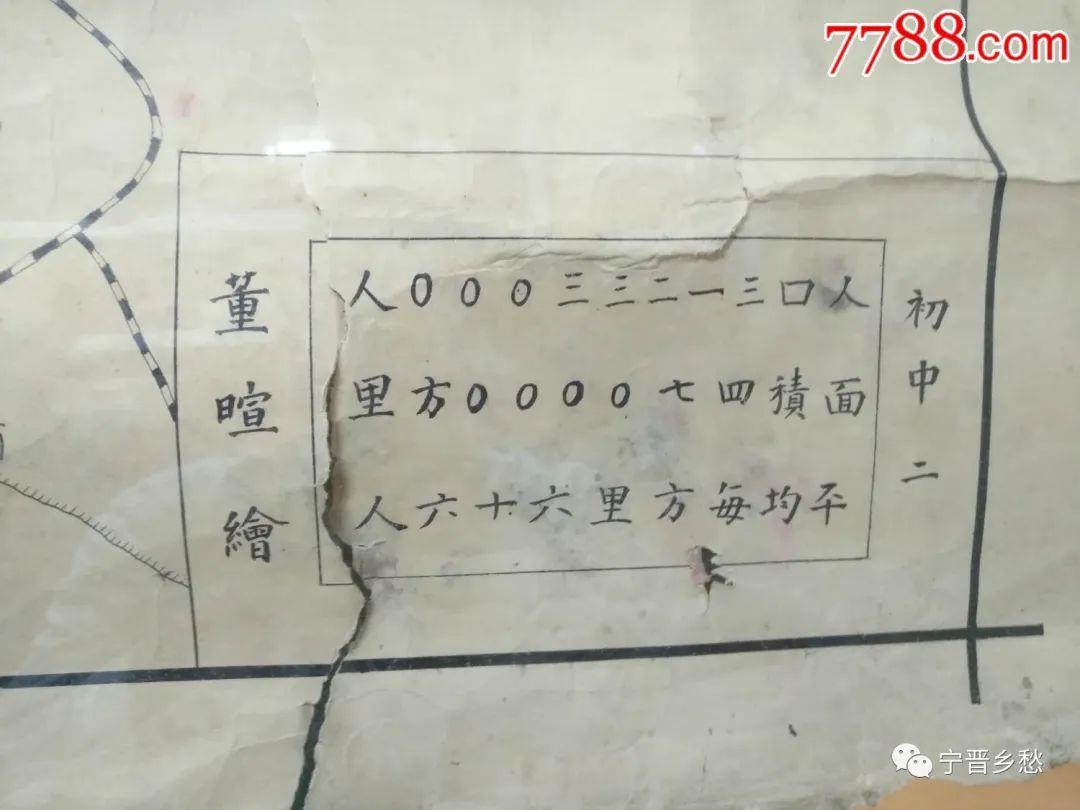 7788.com
初中二
人口三一二三三000人
面積四七0000方里
平均每方里六十六人
董暄繪
宁晋乡愁